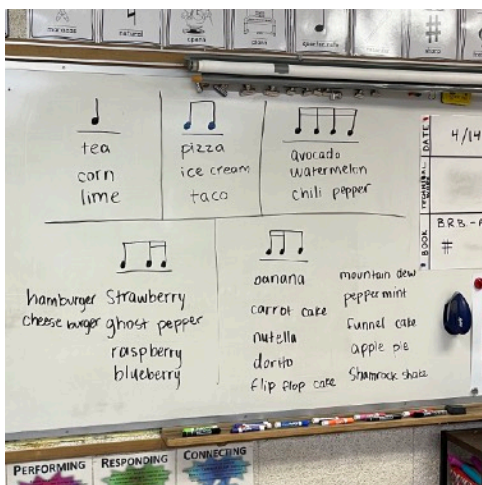 maracas
natural
opera
quarter note
sharp
tea
corn
lime
pizza
ice cream
taco
avocado
watermelon
chili pepper
DATE
4/14
TECHNICAL
BOOK
BRB -
#
hamburger
cheese burger
Strawberry
ghost pepper
raspberry
blueberry
banana
carrot cake
nutella
dorito
flip flop cake
mountain dew
peppermint
funnel cake
apple pie
Shamrock shake
PERFORMING
RESPONDING
CONNECTING